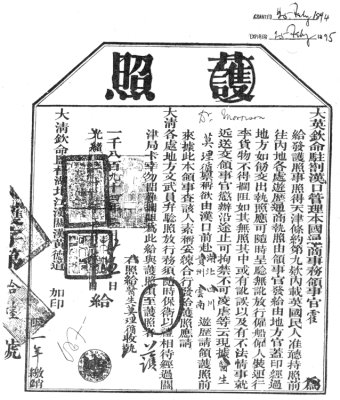 GRANTED 20 Feby 1894
EXPIRES 20 Feby 1895
護照
Dr. Morrison
大英欽命駐劄漢口管理本國通商事務領事官霍
給發護照事照得天津條約第九欵內載英國民人准聽持照前
往內地各處遊歷通商執照由領事官發給由地方官蓋印經過
地方如飭交出執照應可隨時呈驗無訛放行僱船僱人裝運行
李貨物不得攔阻如其無照其中或有訛誤以及有不法情事就
近送交領事官懲辦沿途止可拘禁不可凌虐等云現據醫生
莫理循稟稱欲由漢口前赴四川貴州雲南遊歷請領護照前
來據此本領事查該人素稱妥練合行發給護照應請
大清各處地方文武員弁驗照放行務須隨時保衛以禮相待經過關
津局卡幸勿留難攔阻為此給與護照須至護照者
護
一千八百九十四年 日給
光緒
右照給醫生莫理循收執
大清欽命 湖北 漢 加印
限一年繳銷
號